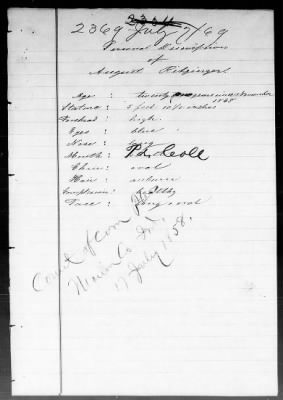 2369 July 7/69
Personal Description
of
August
Age : twenty years since November
1868
Stature : 5 feet 10 1/2 inches
Forehead : high.
Eyes : blue
Nose : long
Mouth : P. L. Cole
Chin : oval
Hair : auburn
Complexion : healthy
Face : long & oval
Court of Com Pl
Marion Co Ind.
17 July 1858.